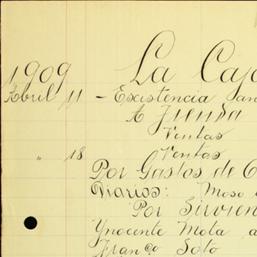 1909 La Caja
Abril 11 - Existencia
A Tienda
Ventas
" 18 Ventas
Por Gastos de
Diarios: Moso
Por Sirvien
Ynocente Mota a
Franco Soto